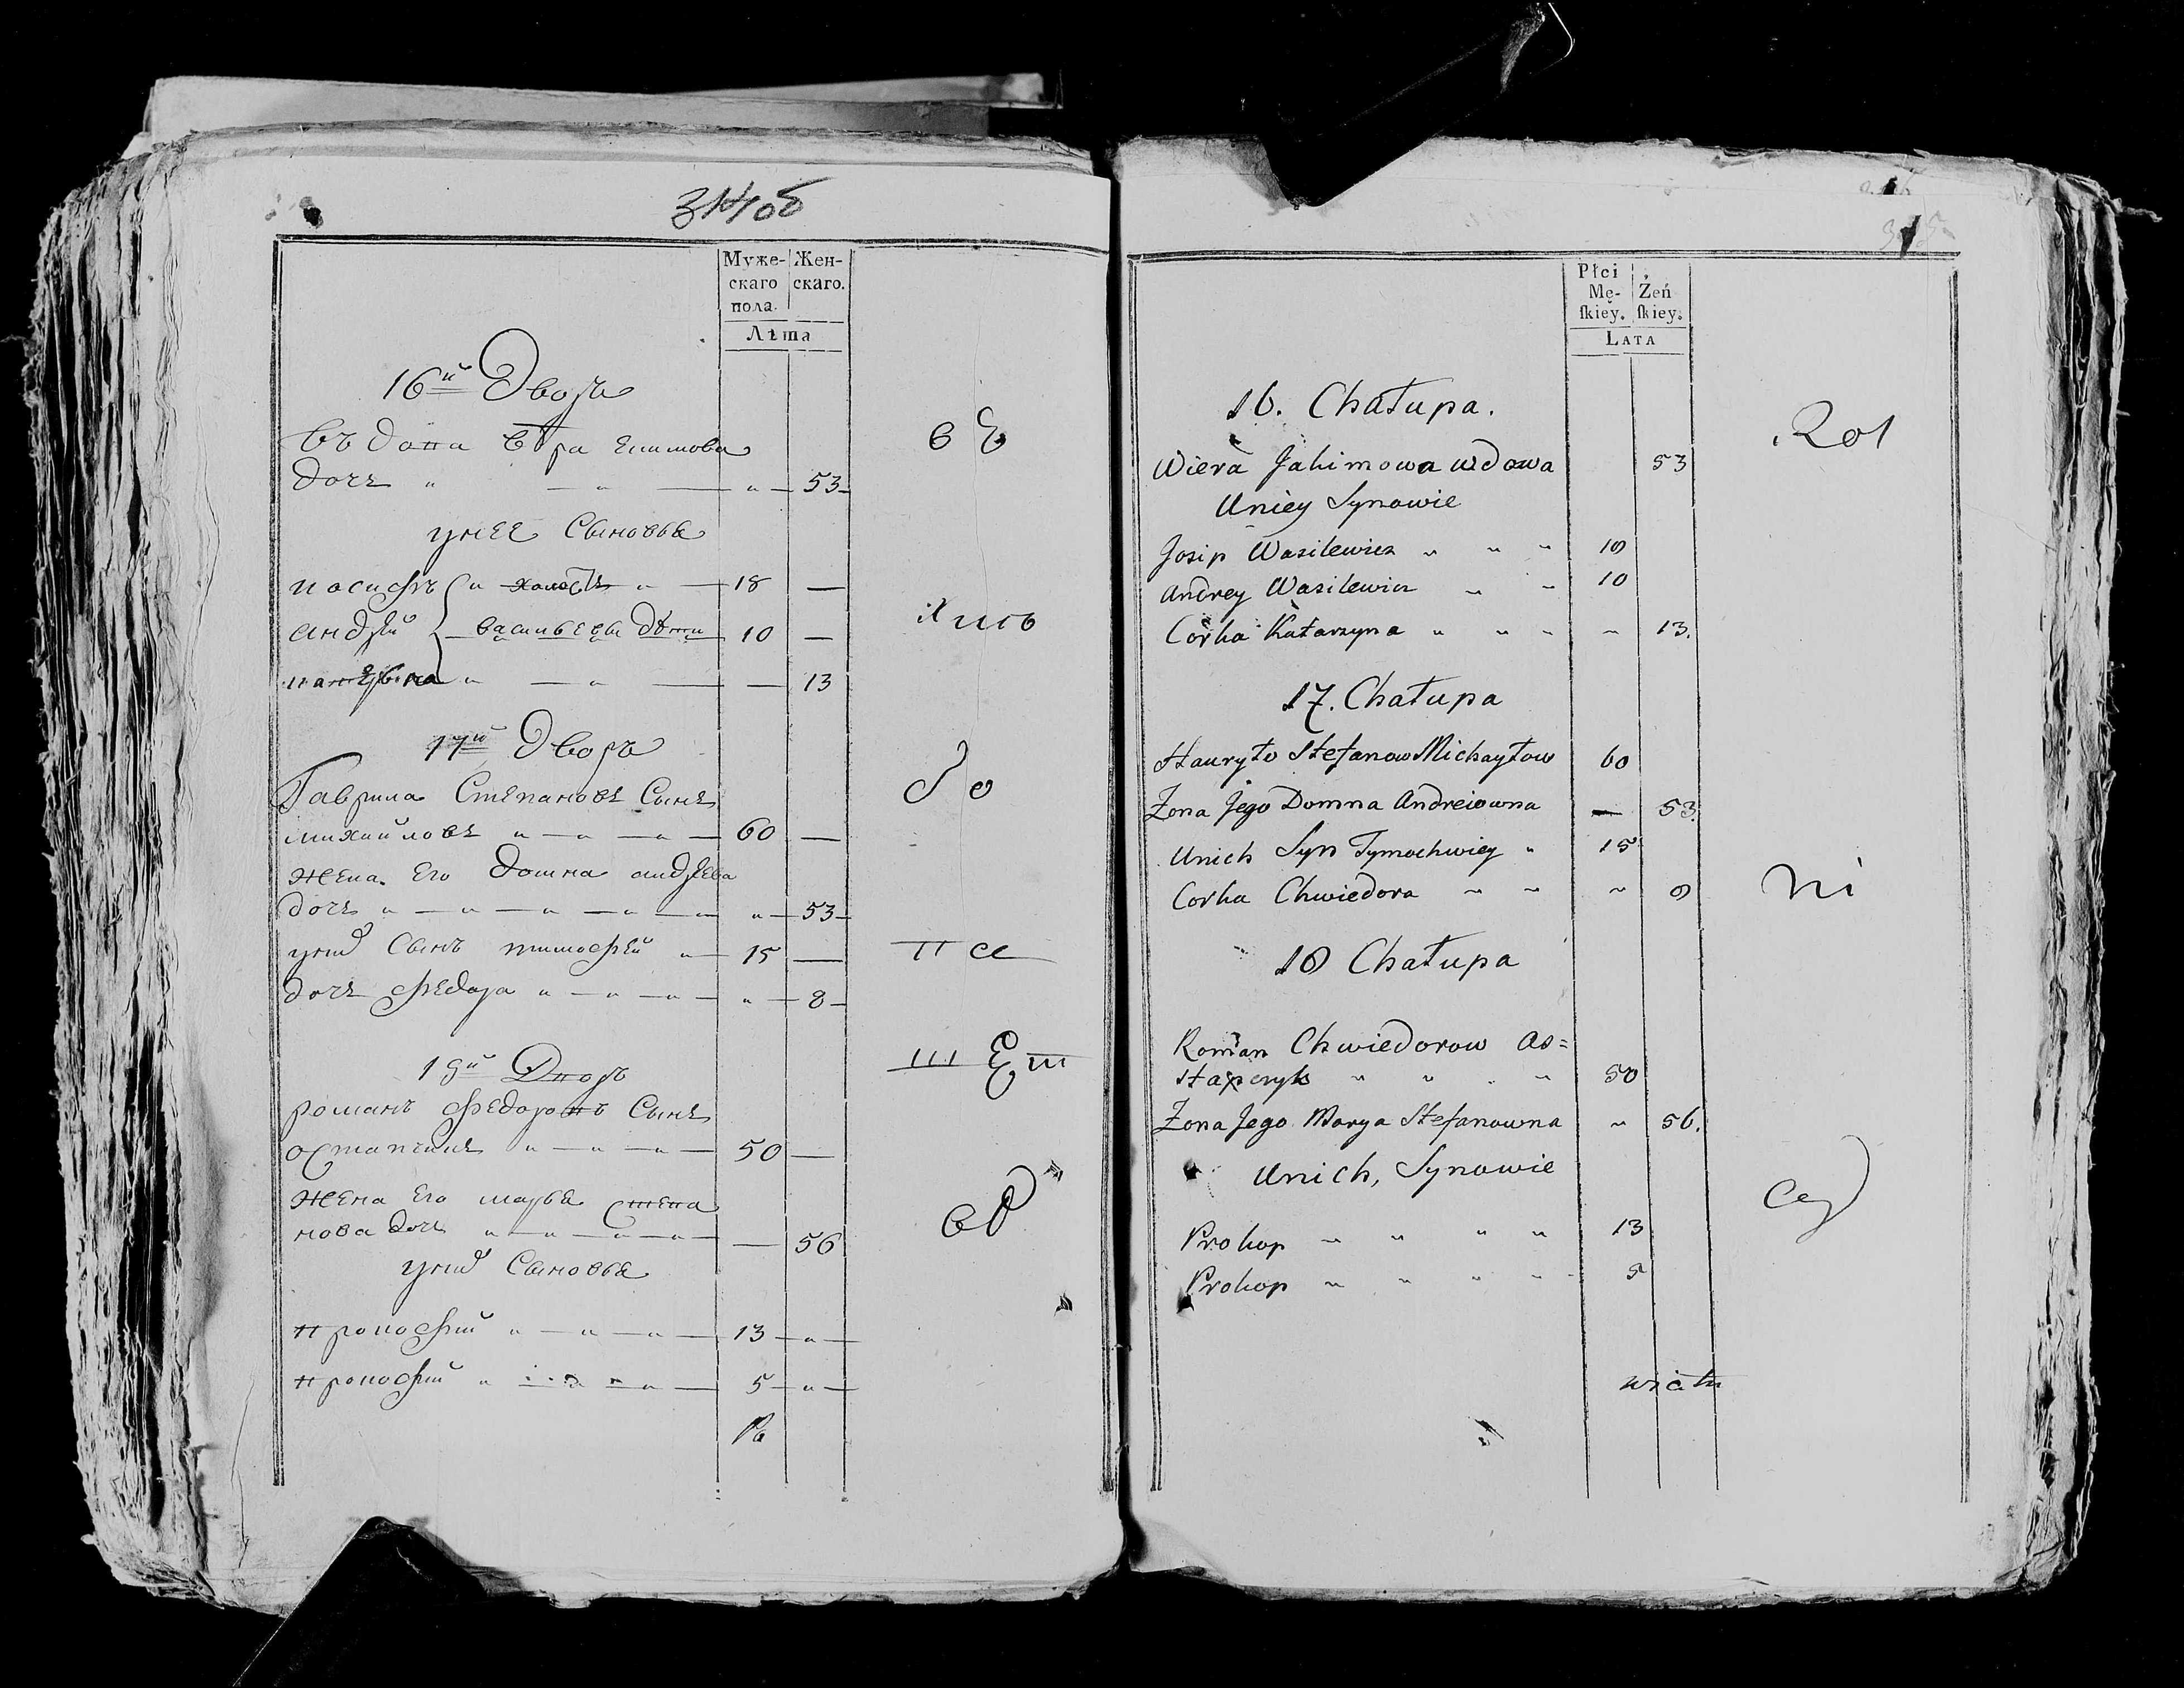 314об
Муже-скаго пола. Жен-скаго.
Лѣта
16й Дворъ
Вдова Вѣра Екимова
дочь " — " — " — 53
у нее Сыновья
иосифъ " холостъ " — 18 —
андрей васильевы дѣти 10 —
катерина " — " — — 13
17й Дворъ
Гаврила Степановъ Сынъ
михайловъ " — " — " — 60 —
жена Его домна андреева
дочь " — " — " — " — " — 53
у них Сынъ тимофей " — 15 —
дочь федора " — " — " — " — 8
Дворъ
романъ федоровъ Сынъ
остапчикъ " — " — " — 50 —
жена Его марья степа
нова дочь " — " — " — " — — 56
у них Сыновья
прокофий " — " — " — 13 — " —
прокофий " — " — 5 — " —
в Е
до
па
в д
Płci Mę-ſkiey. Żeń ſkiey.
LATA
16. Chałupa.
Wiera Jakimowa wdowa 53
Uniey Synowie
Josip Wasilewicz " " " 18
Andrey Wasilewicz " " 10
Corka Katarzyna " " " " 13.
17. Chałupa
Hauryło Stefanow Michayłow 60
Zona Jego Domna Andreiowna — 53.
Unich Syn Tymochwiey " 15
Corka Chwiedora " " " 8
18 Chałupa
Roman Chwiedorow As=
taperyk " " " " 50
Zona Jego Marya Stefanowna " 56.
Unich, Synowie
Prokop " " " " 13
Prokop " " " " 5
Rol
ni
cy